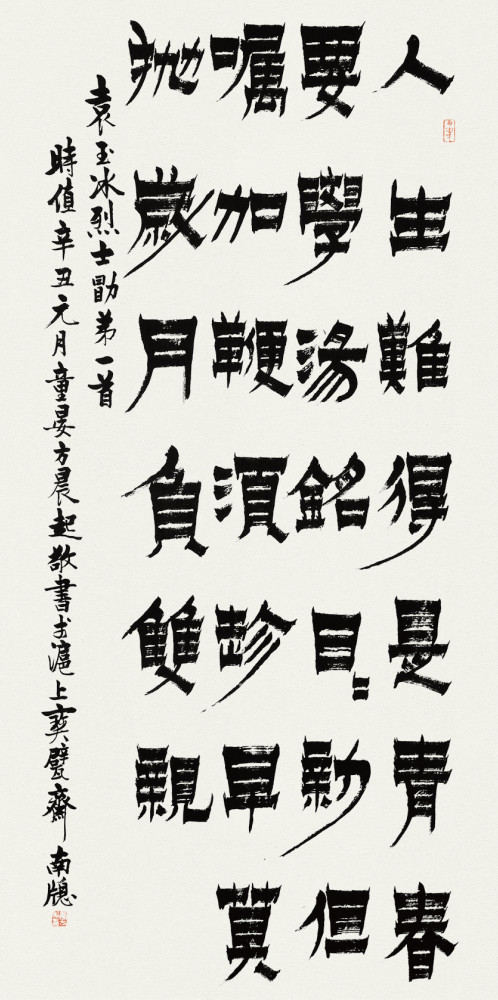 人生難得是青春
要學湯銘日〻新但
嘱加鞭須趁早莫
抛歲月負雙親
袁玉冰烈士勖第一首
時值辛丑元月童晏方晨起敬書於滬上寶甓齋南牕